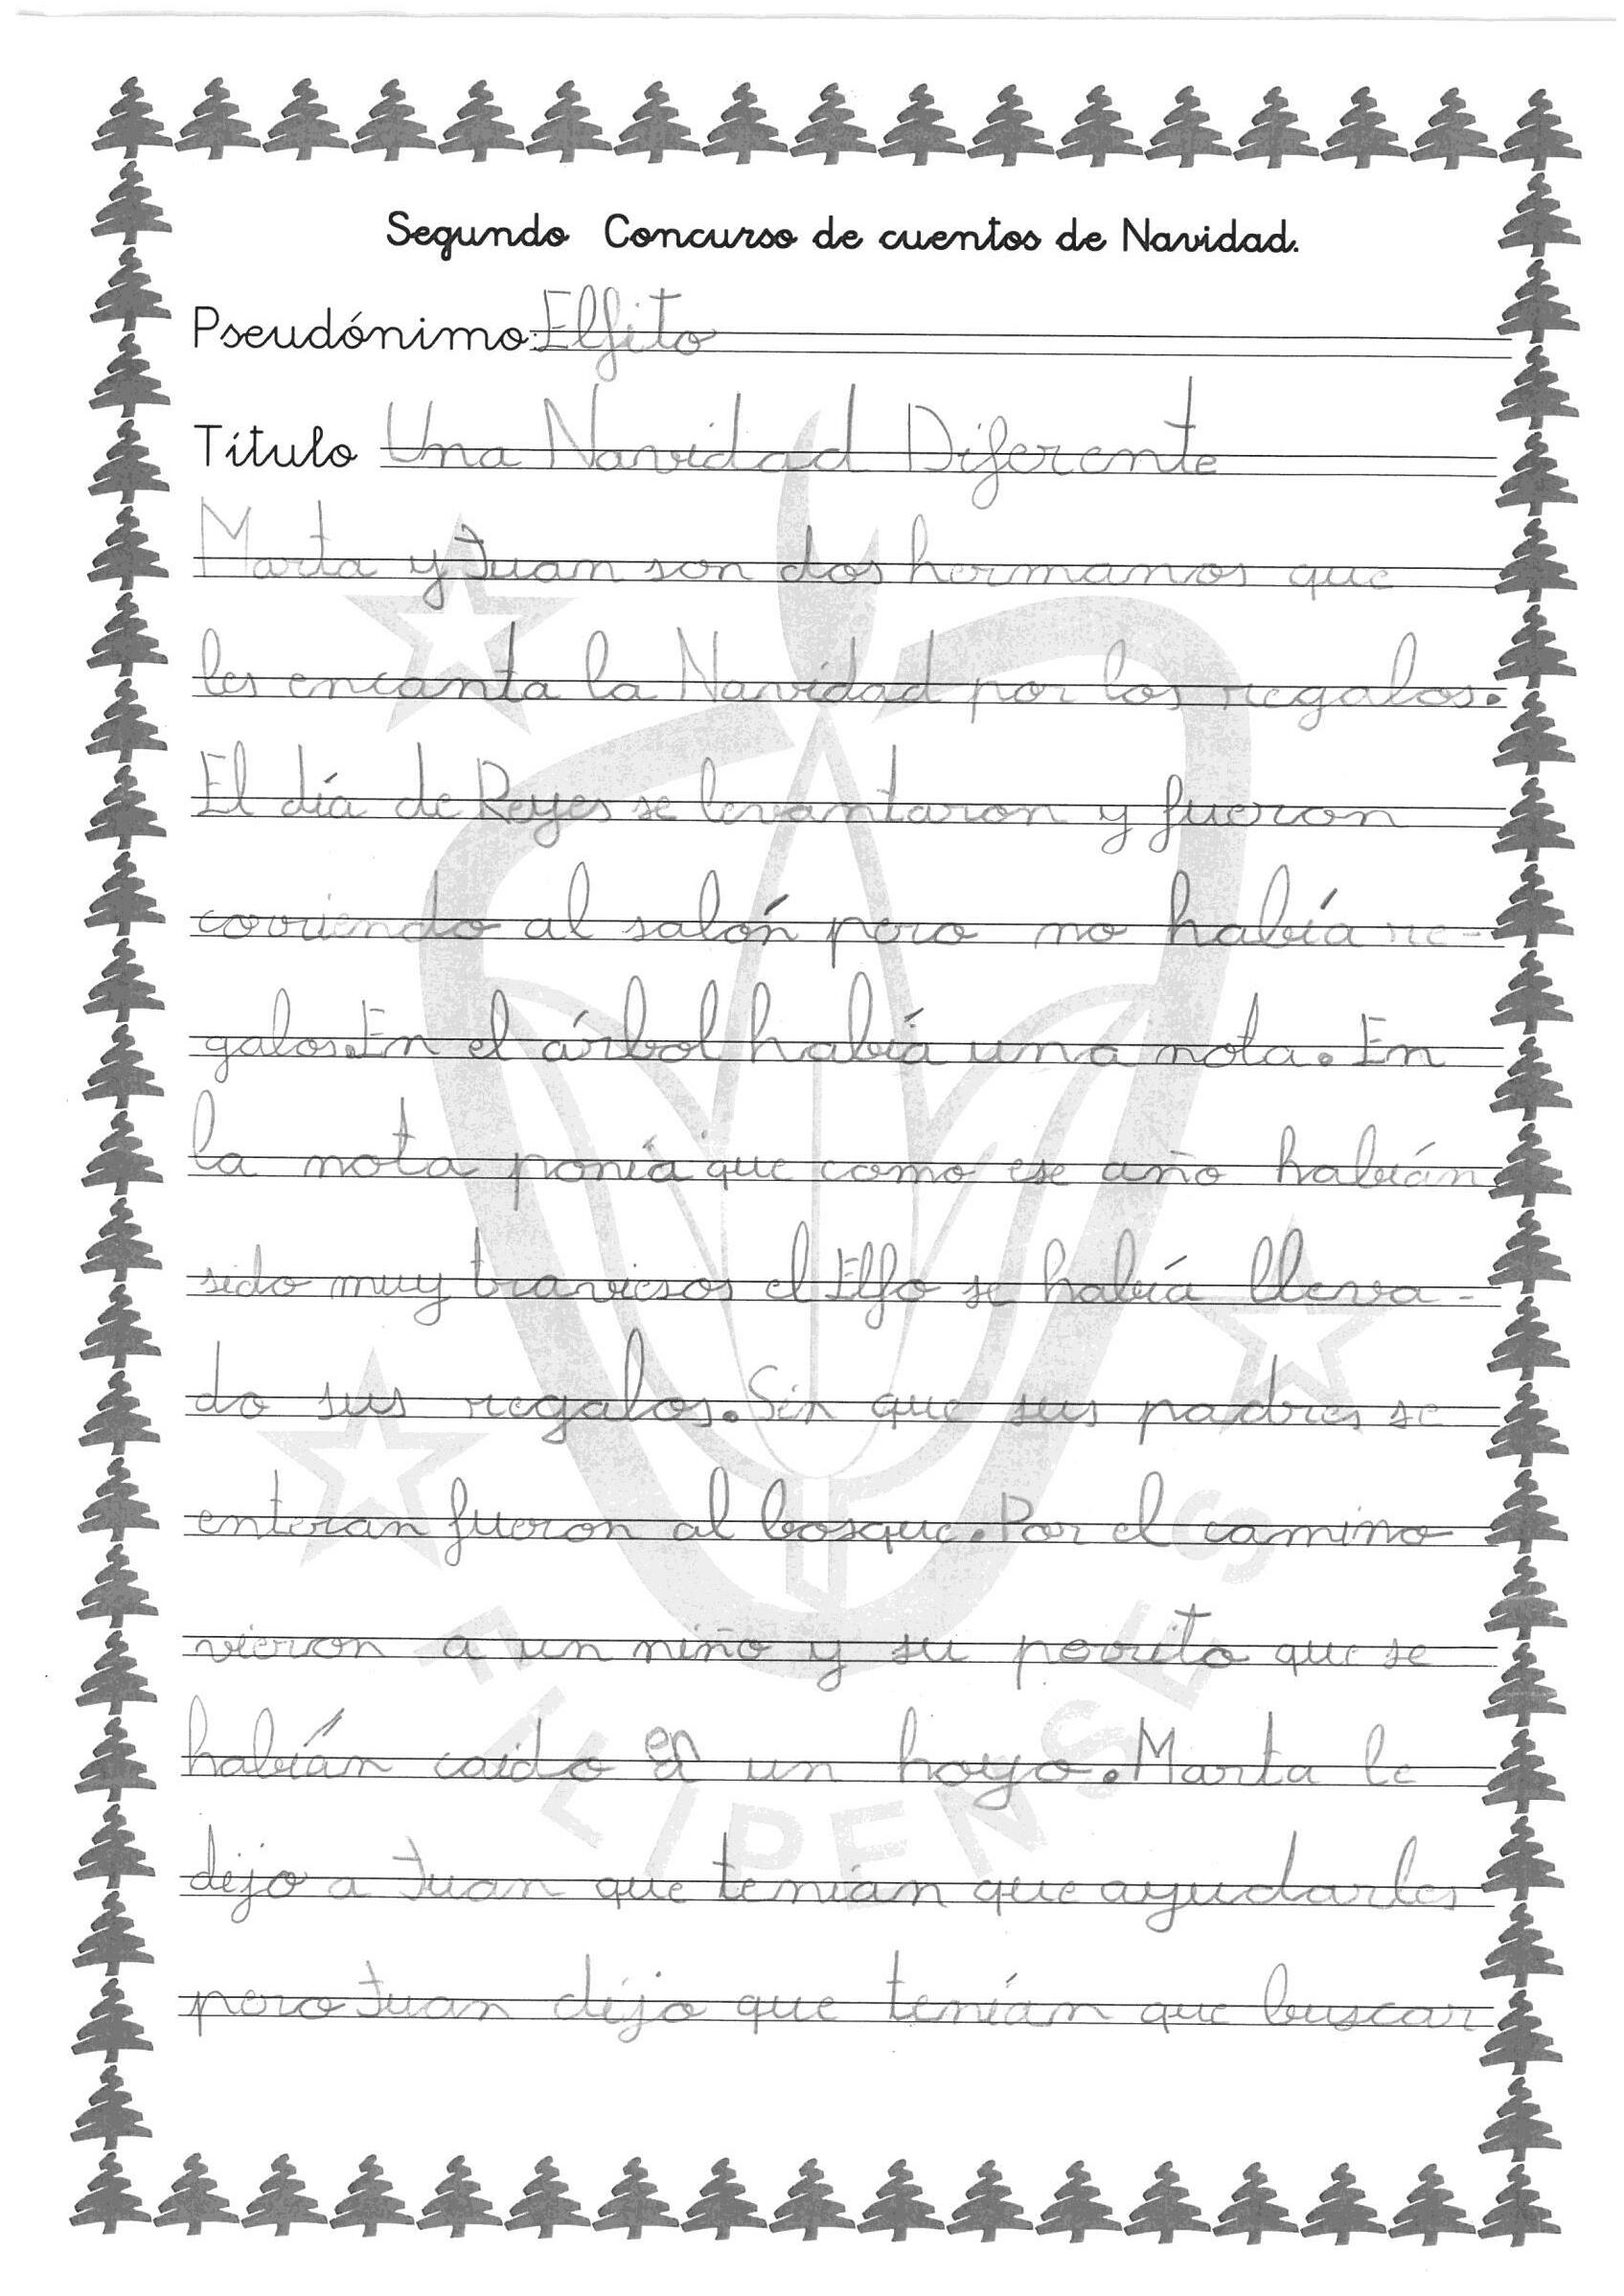 Segundo Concurso de cuentos de Navidad.
Pseudónimo: Elfito
Título Una Navidad Diferente
Marta y Juan son dos hermanos que
les encanta la Navidad por los regalos.
El día de Reyes se levantaron y fueron
corriendo al salón pero no había re-
galos. En el árbol había una nota. En
la nota ponía que como ese año habían
sido muy traviesos el Elfo se había lleva-
do sus regalos. Sin que sus padres se
enteran fueron al bosque. Por el camino
vieron a un niño y su perrito que se
habían caido en un hoyo. Marta le
dijo a Juan que tenían que ayudarles
pero Juan dijo que tenían que buscar
FILIPENSES